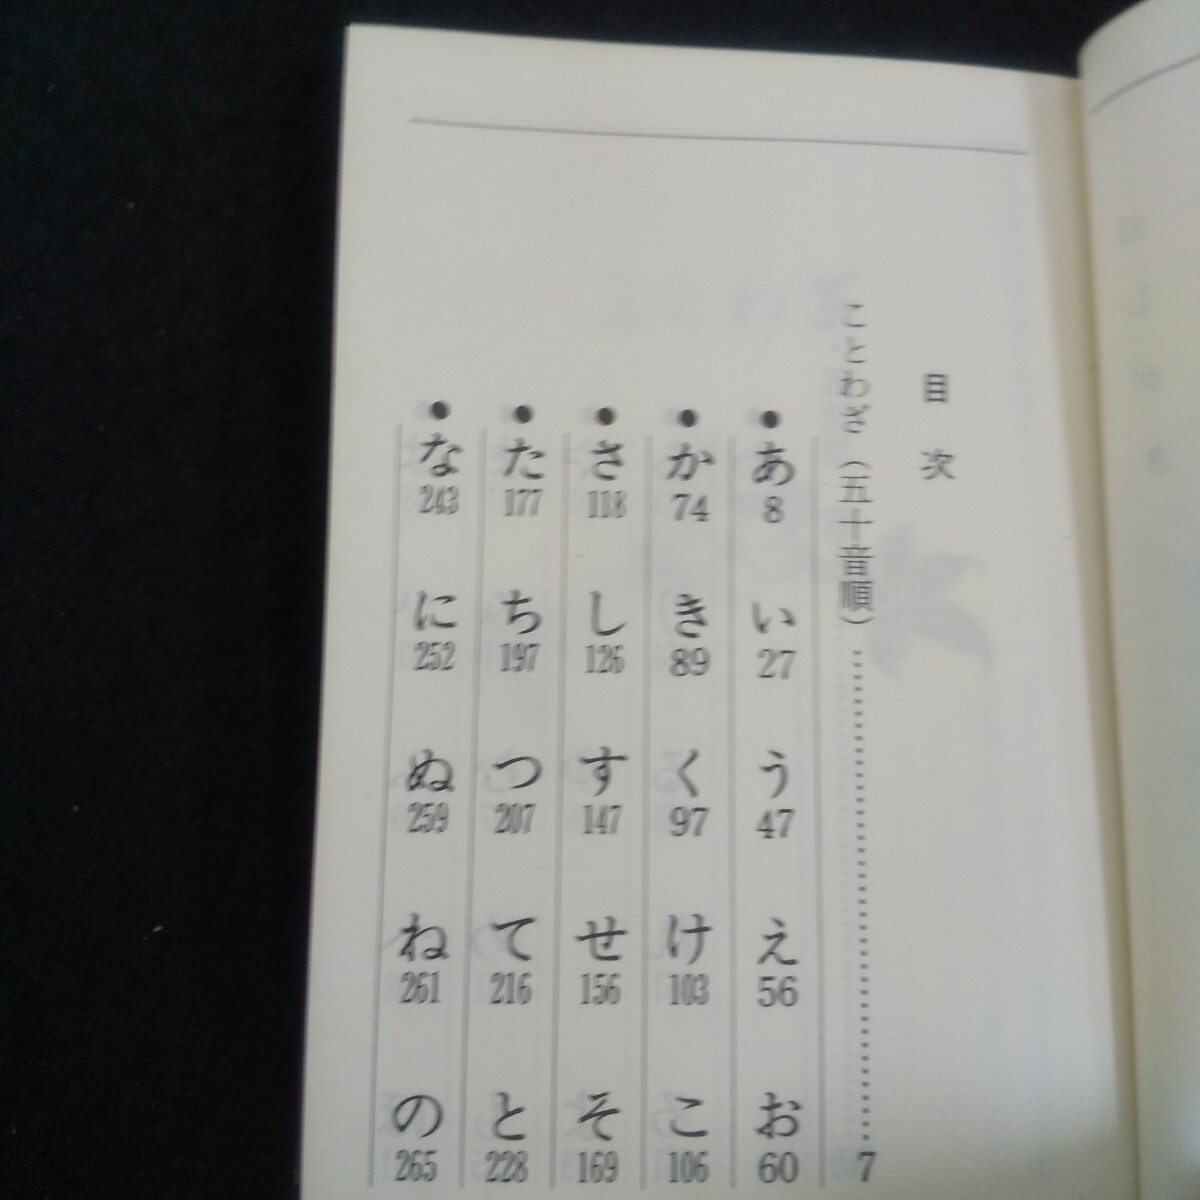 目次
ことわざ（五十音順）……………………7
●あ8 い27 う47 え56 お60
●か74 き89 く97 け103 こ106
●さ118 し126 す147 せ156 そ169
●た177 ち197 つ207 て216 と228
●な243 に252 ぬ259 ね261 の265